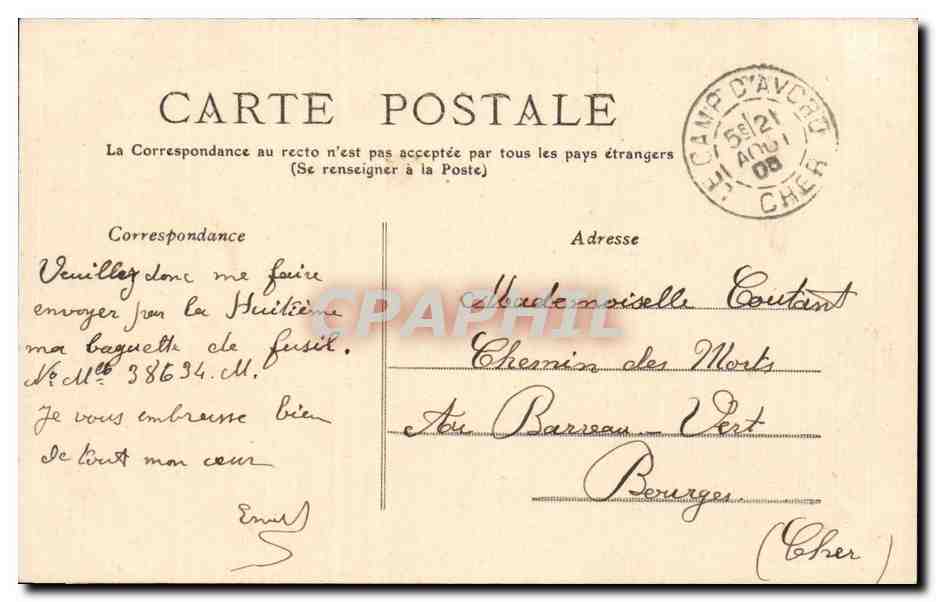 CARTE POSTALE
La Correspondance au recto n'est pas acceptée par tous les pays étrangers
(Se renseigner à la Poste)
LE CAMP D'AVORD
5E 21
AOUT
08
CHER
Correspondance
Veuillez donc me faire
envoyer par la Huitième
ma baguette de fusil.
No. Mle 38634. M.
Je vous embrasse bien
de tout mon cœur
Adresse
Mademoiselle Coutant
Chemin des Morts
Au Barreau-Vert
Bourges.
(Cher)
CPAPHIL